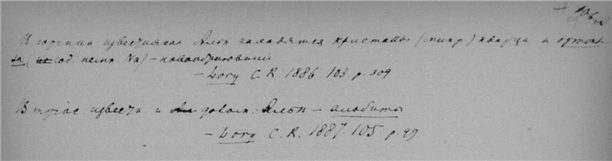 106
В горных известняках Альп находятся кристаллы (микр.) кварца и ортокла
за (сод. немн. Na) – новообразований
– Lory C. R. 1886. 103. p. 309
В триас. известн. и доломит. Альп – альбита
– Lory C. R. 1887. 105 p. 99